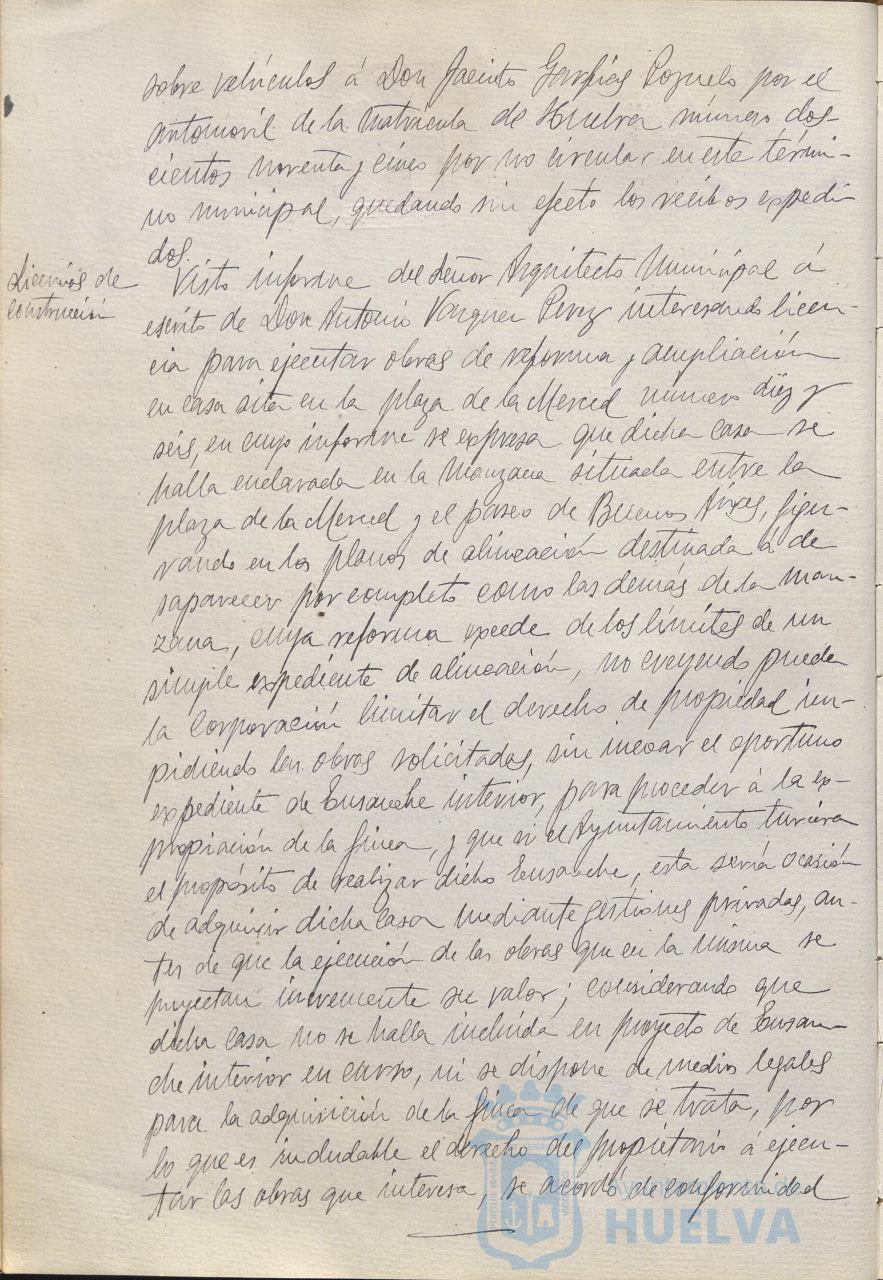 sobre vehículos á Don Jacinto Garfias Pozuelo por el
automovil de la Matrícula de Huelva número dos-
cientos noventa y cinco por no circular en este térmi-
no municipal, quedando sin efecto los recibos expedi
dos.
Licencias de
construcción
Visto informe del Señor Arquitecto Municipal á
escrito de Don Antonio Vazquez Perez interesando licen-
cia para ejecutar obras de reforma y ampliación
en casa sita en la plaza de la Merced número diez y
seis, en cuyo informe se expresa que dicha casa se
halla enclavada en la manzana situada entre la
plaza de la Merced y el paseo de Buenos Aires, figu-
rando en los planos de alineación destinada á de
saparecer por completo como las demás de la man-
zana, cuya reforma excede de los límites de un
simple expediente de alineación, no creyendo pueda
la Corporación limitar el derecho de propiedad im-
pidiendo las obras solicitadas, sin incoar el oportuno
expediente de Ensanche interior, para proceder á la ex-
propiación de la finca, y que si el Ayuntamiento tuviera
el propósito de realizar dicho Ensanche, esta sería ocasión
de adquirir dicha casa mediante gestiones privadas, an-
tes de que la ejecución de las obras que en la misma se
proyectan incremente su valor; considerando que
dicha casa no se halla incluida en proyecto de Ensan-
che interior en curso, ni se dispone de medios legales
para la adquisición de la finca de que se trata, por
lo que es indudable el derecho del propietario á ejecu-
tar las obras que interesa, se acordó de conformidad
Ayuntamiento de
HUELVA